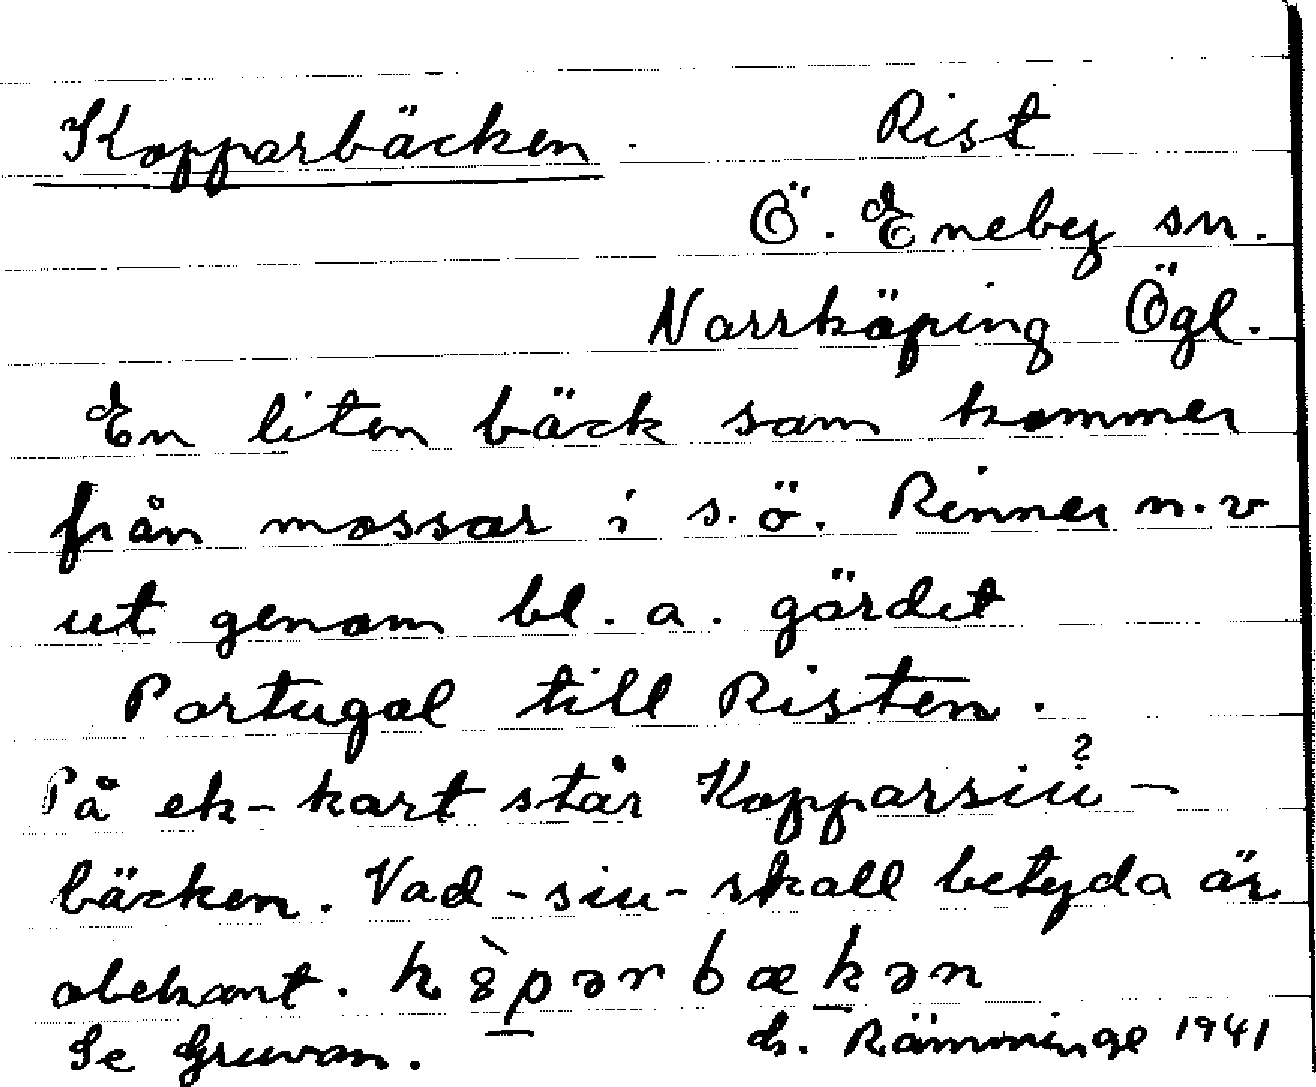 Kopparbäcken. Rist
Ö. Eneby sn.
Norrköping Ögl.
En liten bäck som kommer
från mossar i s.ö. Rinner n.v
ut genom bl. a. gärdet
Portugal till Risten.
På ek-kart står Kopparsiu? -
bäcken. Vad -siu- skall betyda är
obekant. k8̀pərbækən
Se Gruvan. Rämninge 1941